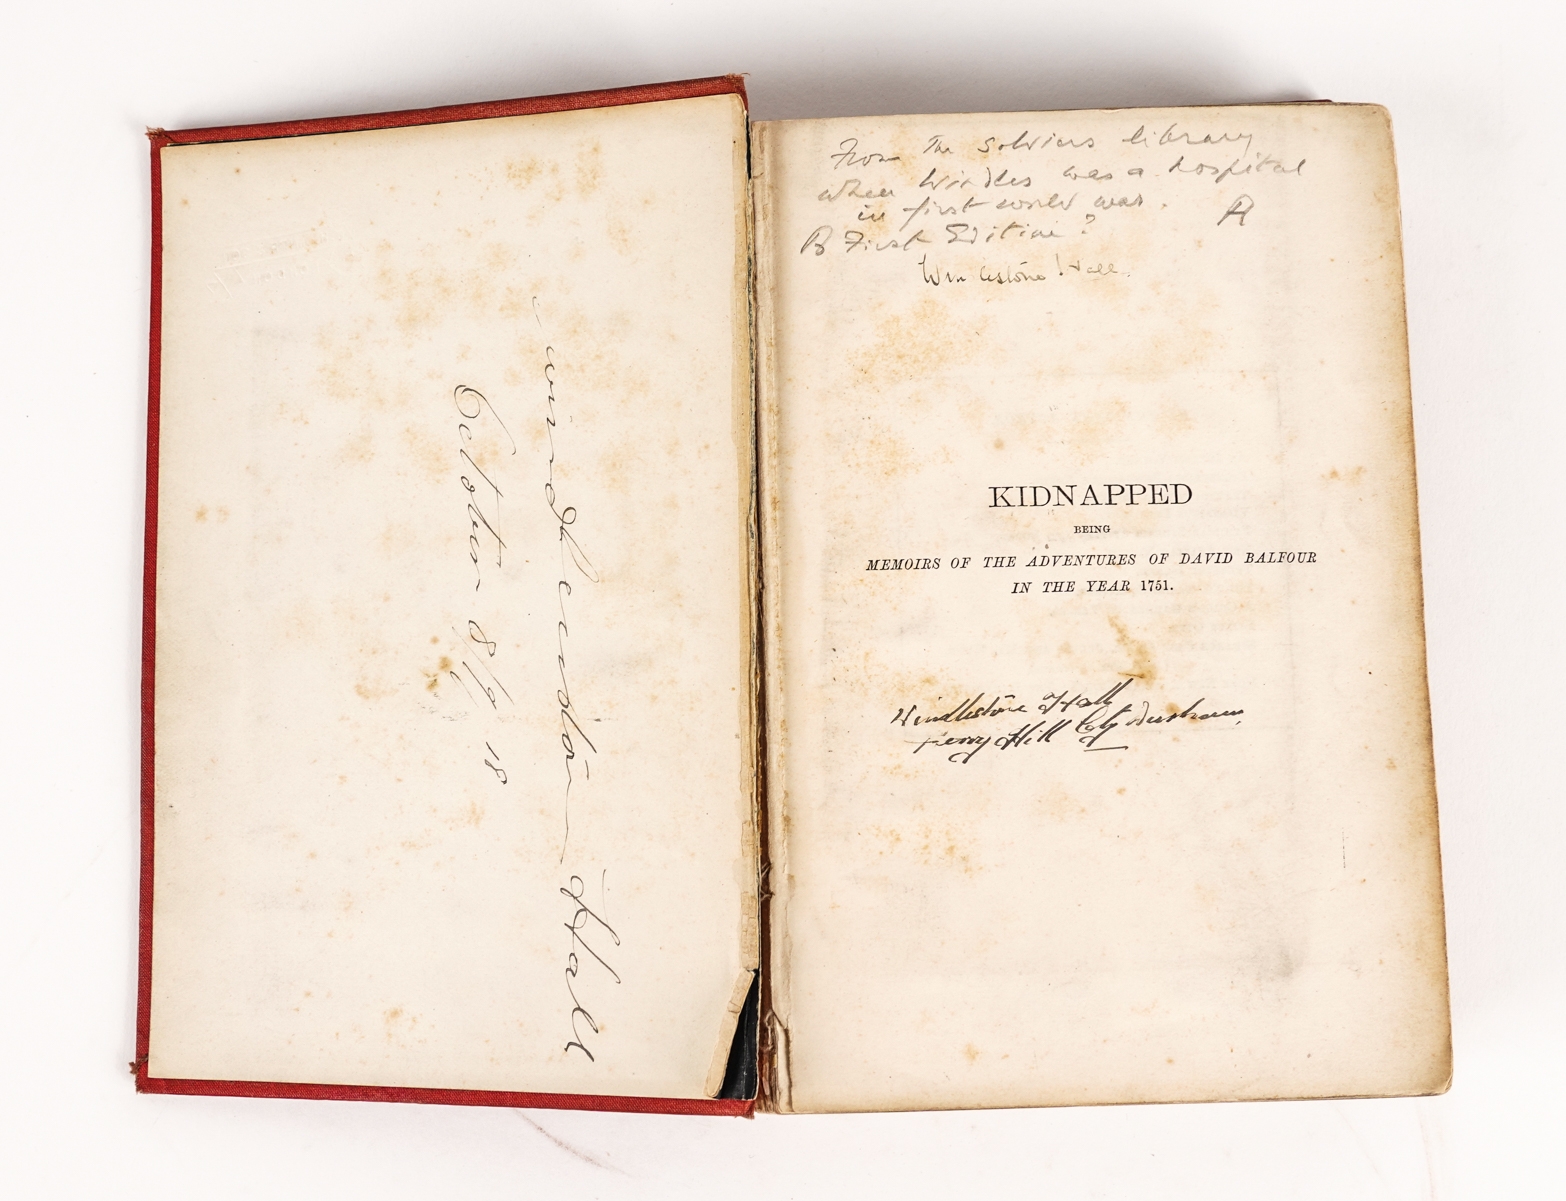 windlestone Hall
October 8/9 18
From The soldiers library
when Windles was a hospital
in first world war.
First Edition?
Windlestone Hall
KIDNAPPED
BEING
MEMOIRS OF THE ADVENTURES OF DAVID BALFOUR
IN THE YEAR 1751.
Windlestone Hall
Ferry Hill Co. Durham